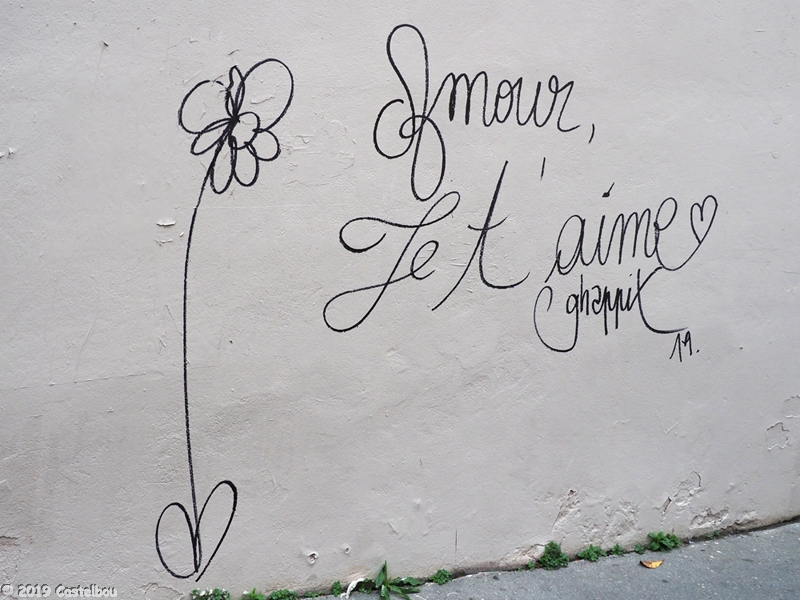 Amour,
Je t'aime
ghappix
19.
© 2019 Costelbou